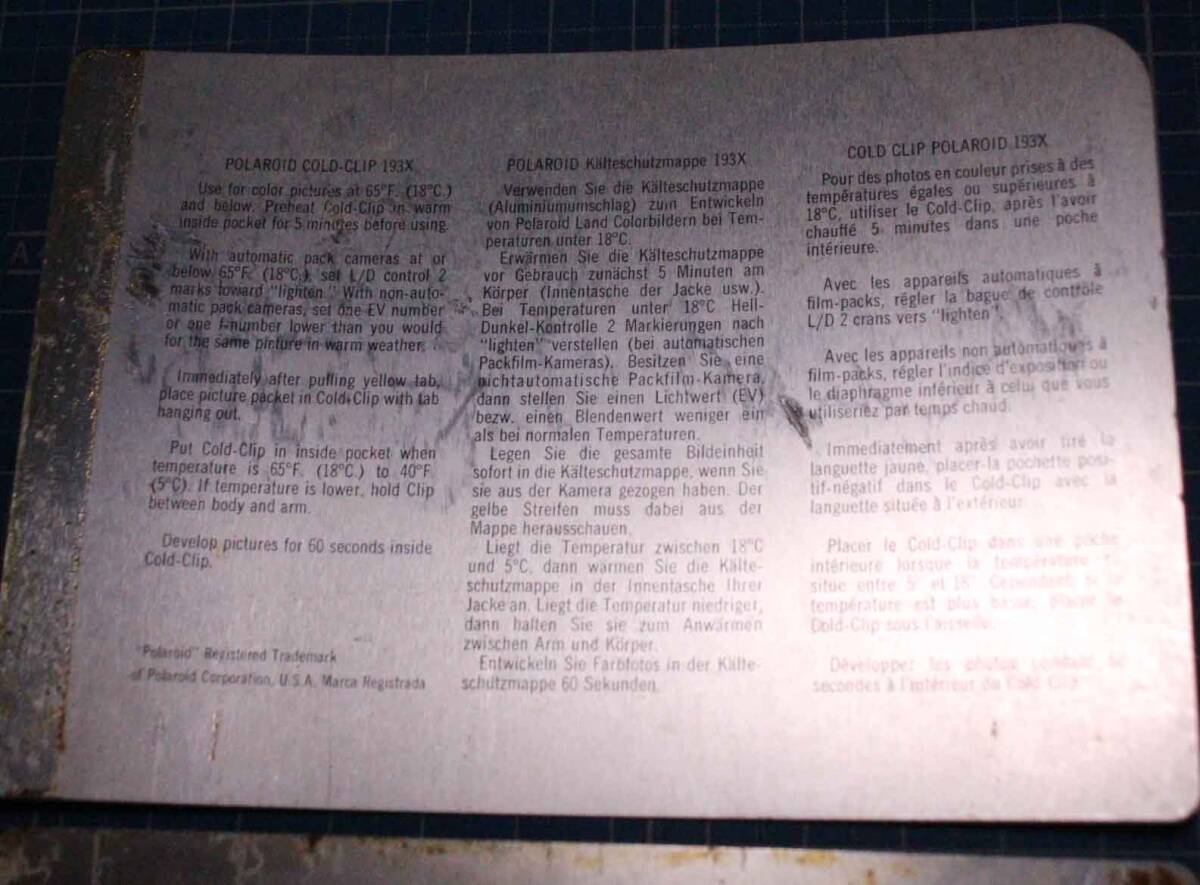 POLAROID COLD-CLIP 193X
Use for color pictures at 65°F. (18°C.)
and below. Preheat Cold-Clip in warm
inside pocket for 5 minutes before using.
With automatic pack cameras at or
below 65°F. (18°C.), set L/D control 2
marks toward "lighten." With non-auto-
matic pack cameras, set one EV number
or one f-number lower than you would
for the same picture in warm weather.
Immediately after pulling yellow tab,
place picture packet in Cold-Clip with tab
hanging out.
Put Cold-Clip in inside pocket when
temperature is 65°F. (18°C.) to 40°F.
(5°C). If temperature is lower, hold Clip
between body and arm.
Develop pictures for 60 seconds inside
Cold-Clip.
"Polaroid" Registered Trademark
of Polaroid Corporation, U.S.A. Marca Registrada
POLAROID Kälteschutzmappe 193X
Verwenden Sie die Kälteschutzmappe
(Aluminiumumschlag) zum Entwickeln
von Polaroid Land Colorbildern bei Tem-
peraturen unter 18°C.
Erwärmen Sie die Kälteschutzmappe
vor Gebrauch zunächst 5 Minuten am
Körper (Innentasche der Jacke usw.).
Bei Temperaturen unter 18°C Hell-
Dunkel-Kontrolle 2 Markierungen nach
"lighten" verstellen (bei automatischen
Packfilm-Kameras). Besitzen Sie eine
nichtautomatische Packfilm-Kamera,
dann stellen Sie einen Lichtwert (EV)
bezw. einen Blendenwert weniger ein
als bei normalen Temperaturen.
Legen Sie die gesamte Bildeinheit
sofort in die Kälteschutzmappe, wenn Sie
sie aus der Kamera gezogen haben. Der
gelbe Streifen muss dabei aus der
Mappe herausschauen.
Liegt die Temperatur zwischen 18°C
und 5°C, dann wärmen Sie die Kälte-
schutzmappe in der Innentasche Ihrer
Jacke an. Liegt die Temperatur niedriger,
dann halten Sie sie zum Anwärmen
zwischen Arm und Körper.
Entwickeln Sie Farbfotos in der Kälte-
schutzmappe 60 Sekunden.
COLD CLIP POLAROID 193X
Pour des photos en couleur prises à des
températures égales ou supérieures à
18°C, utiliser le Cold-Clip, après l'avoir
chauffé 5 minutes dans une poche
intérieure.
Avec les appareils automatiques à
film-packs, régler la bague de contrôle
L/D 2 crans vers "lighten".
Avec les appareils non automatiques à
film-packs, régler l'indice d'exposition ou
le diaphragme inférieur à celui que vous
utiliseriez par temps chaud.
Immediatement après avoir tiré la
languette jaune, placer la pochette posi-
tif-négatif dans le Cold-Clip avec la
languette située à l'extérieur.
Placer le Cold-Clip dans une poche
intérieure lorsque la température
situe entre 5° et 18°. Cependant si la
température est plus basse, placer le
Cold-Clip sous l'aisselle.
Développer les photos pendant
secondes à l'intérieur du Cold-Clip.